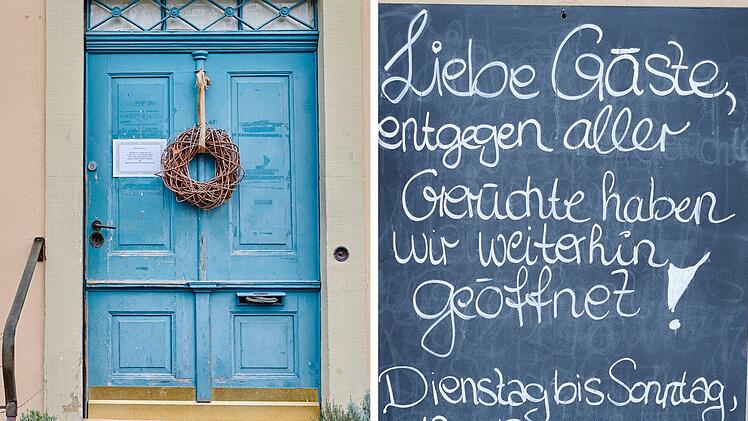 Liebe Gäste,
entgegen aller
Gerüchte haben
wir weiterhin
geöffnet!
Dienstag bis Sonntag,